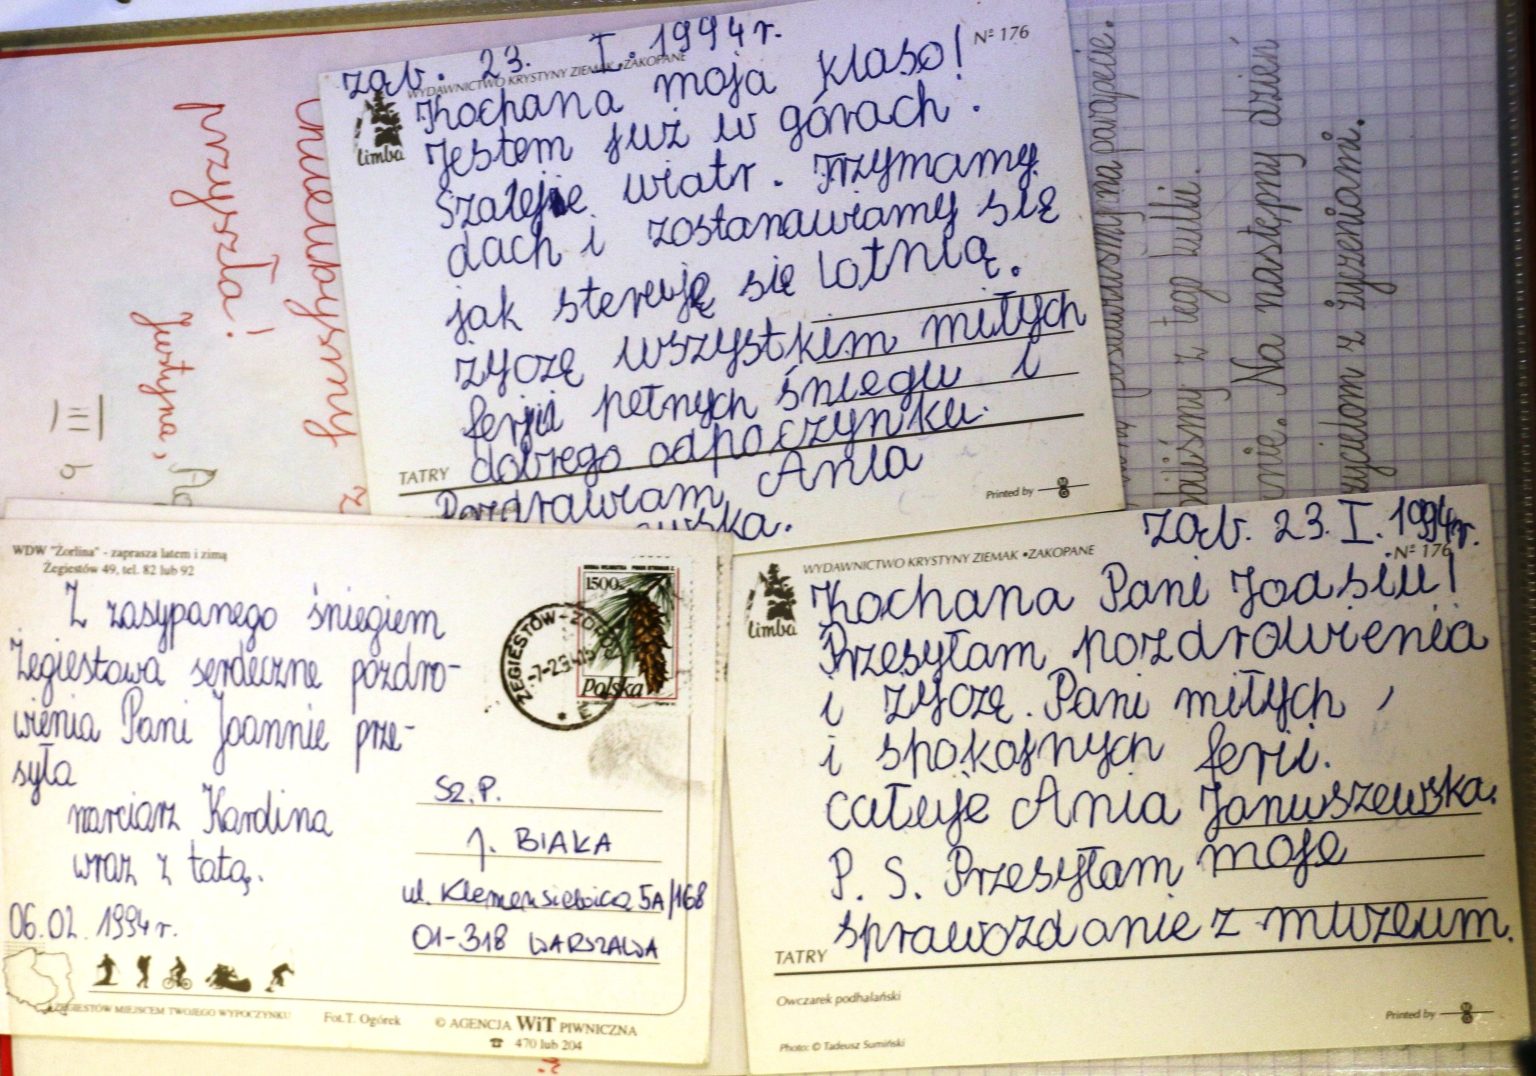 Ząb. 23. I. 1994r.
WYDAWNICTWO KRYSTYNY ZIEMAK • ZAKOPANE
Nº 176
limba
Kochana moja klaso!
Jestem już w górach.
Szaleje wiatr. Trzymamy
dach i zostanawiamy się
jak steruję się lotnią.
życzę wszystkim miłych
ferii pełnych śniegu i
dobrego odpoczynku.
TATRY
Pozdrawiam Ania
Printed by
przyszła!
Justyna,
na parapecie.
z tego kulki.
Na następny dzień
z życzeniami.
WDW "Zorlina" - zaprasza latem i zimą
Żegiestów 49, tel. 82 lub 92
Z zasypanego śniegiem
Żegiestowa serdeczne pozdro-
wienia Pani Joannie prze-
syła
narciarz Karolina
wraz z tatą.
06.02.1994r.
1500
Polska
ŻEGIESTÓW-ZDRÓJ
Sz. P.
J. BIAŁA
ul. Klemensiewicza 5A/168
01-318 WARSZAWA
ŻEGIESTÓW MIEJSCEM TWOJEGO WYPOCZYNKU
Fot. T. Ogórek
© AGENCJA WiT PIWNICZNA
☎ 470 lub 204
Ząb. 23. I. 1994r.
WYDAWNICTWO KRYSTYNY ZIEMAK • ZAKOPANE
Nº 176
limba
Kochana Pani Joasiu!
Przesyłam pozdrowienia
i życzę Pani miłych
i spokojnych ferii.
całuje Ania Januszewska.
P. S. Przesyłam moje
sprawozdanie z muzeum.
TATRY
Owczarek podhalański
Photo: © Tadeusz Sumiński
Printed by